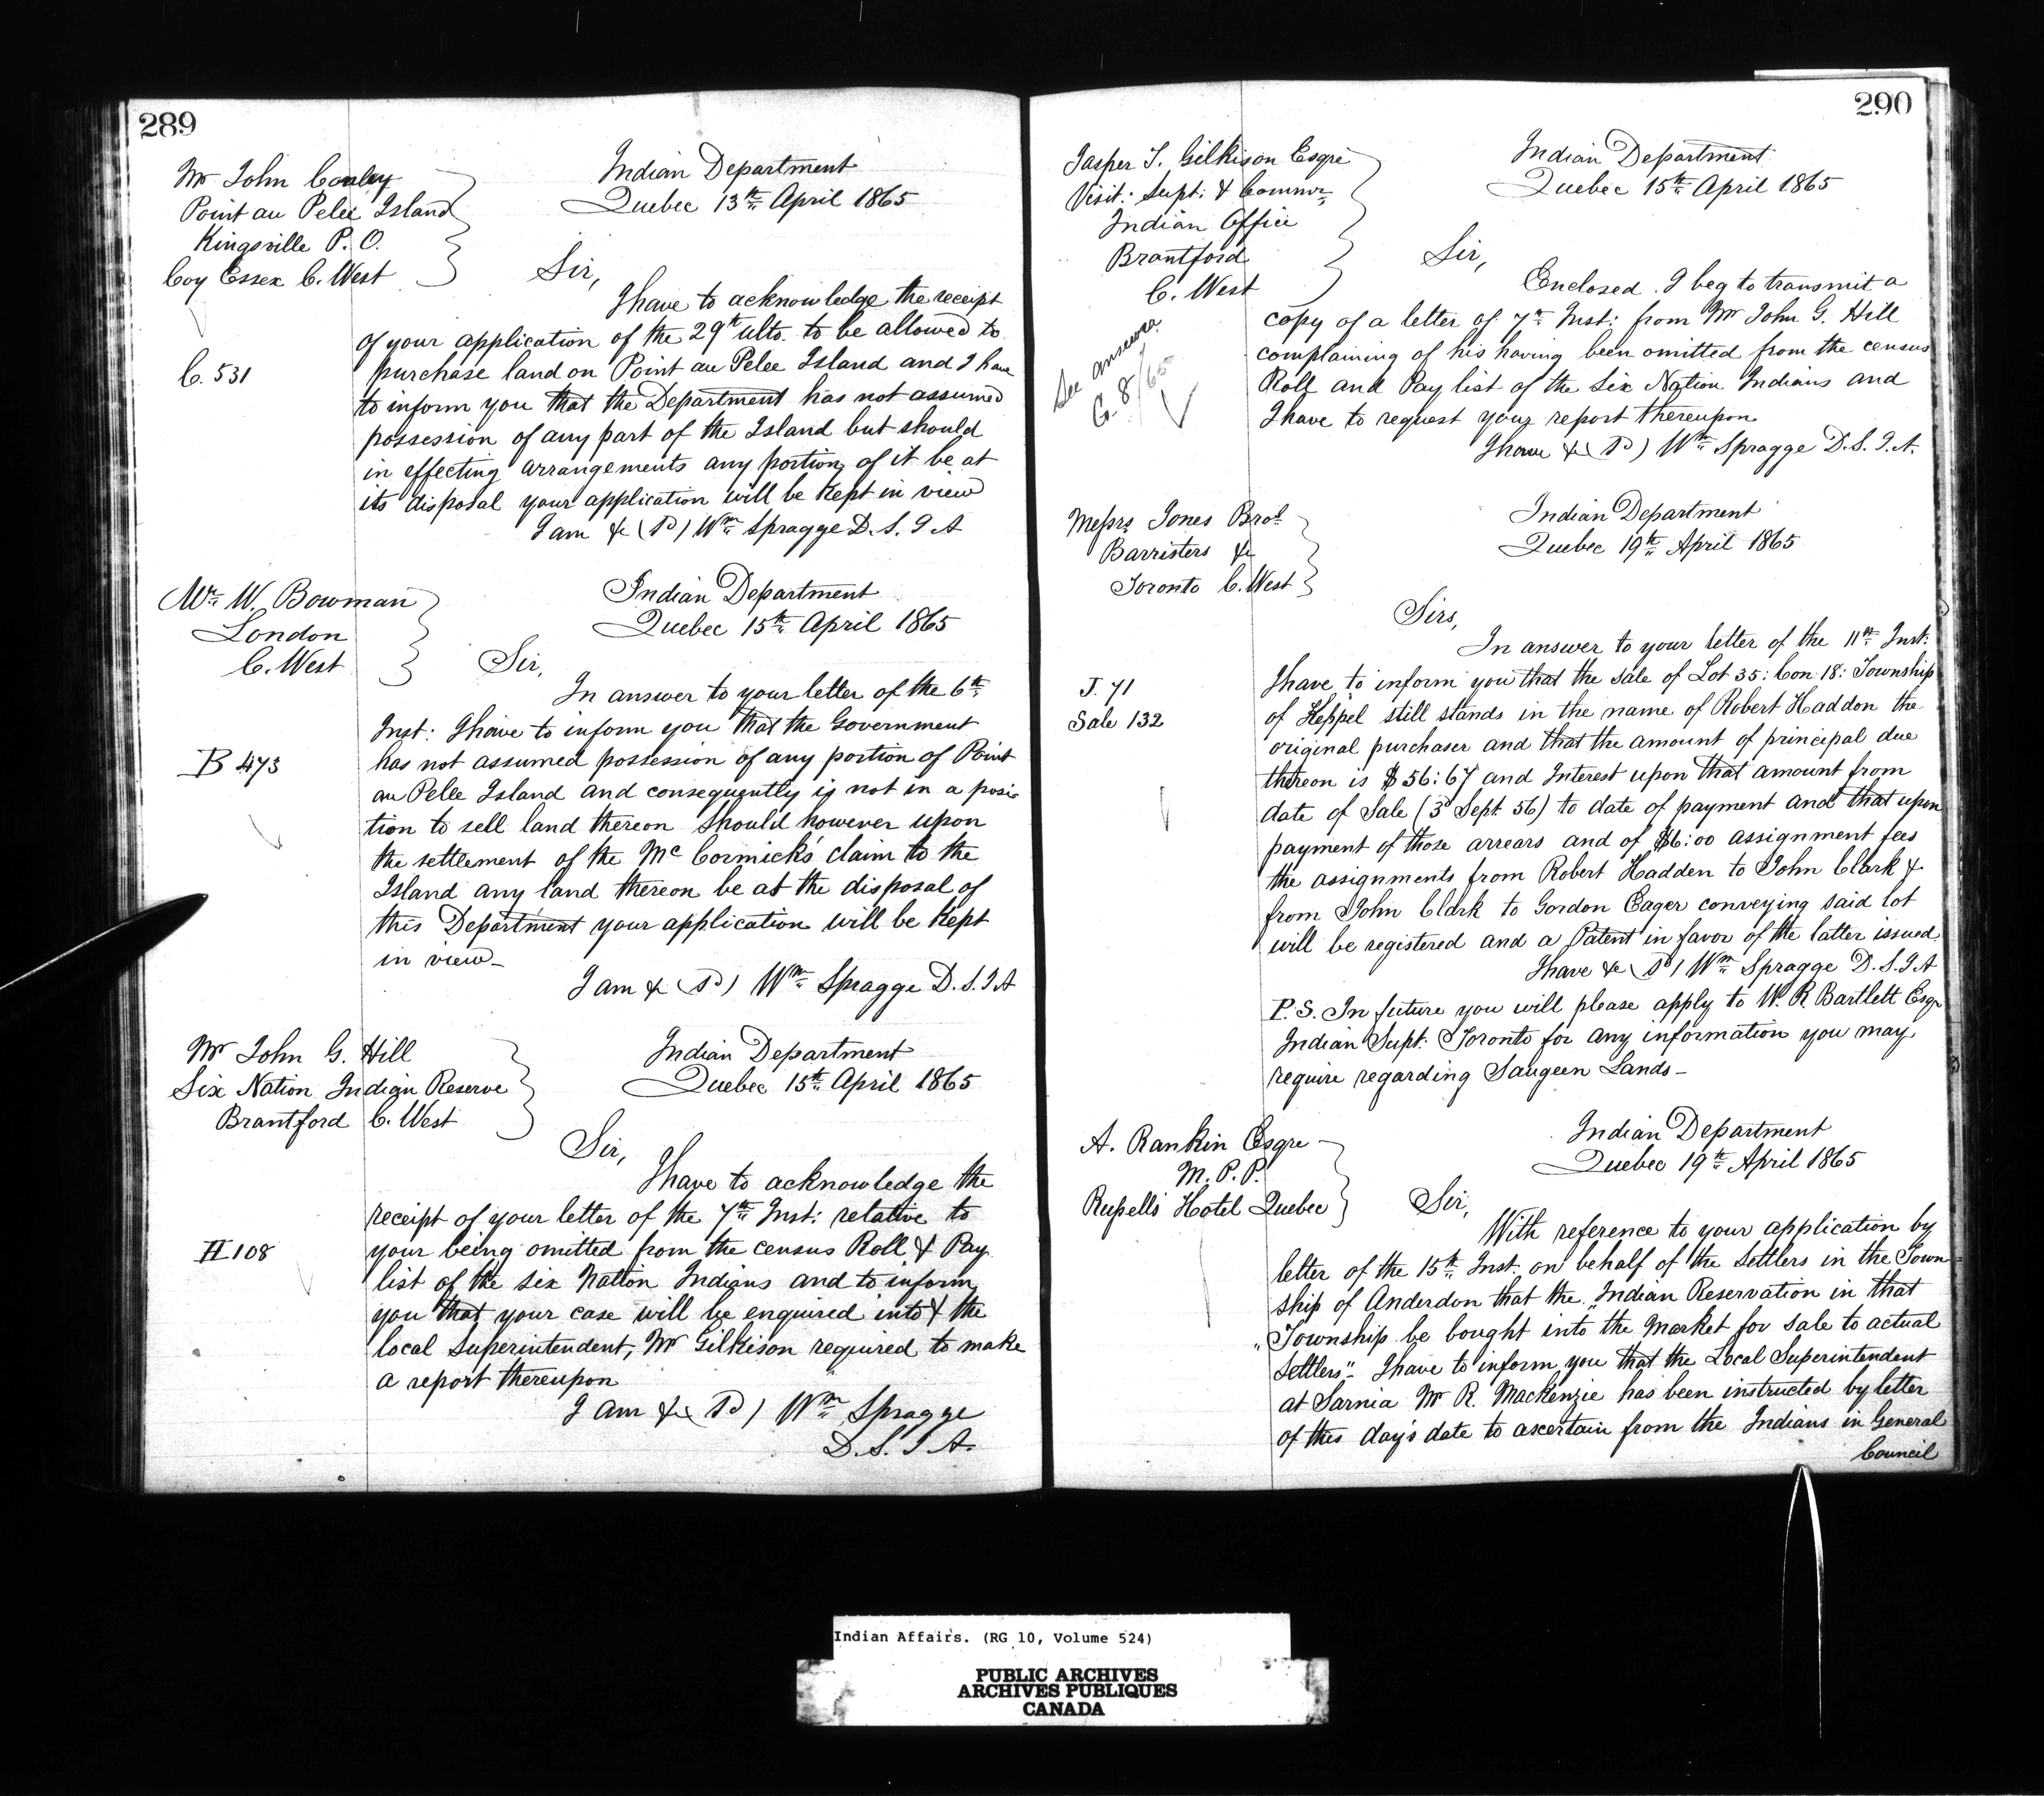 289
Mr John Conley
Point au Pelee Island
Kingsville P.O.
Coy Essex C. West
Indian Department
Quebec 13th April 1865
Sir,
I have to acknowledge the receipt
of your application of the 29th ulto. to be allowed to
C. 531
purchase land on Point au Pelee Island and I have
to inform you that the Department has not assumed
possession of any part of the Island but should
in effecting arrangements any portion of it be at
its disposal your application will be kept in view
I am &c (Sd) Wm Spragge D.S.I.A
Mr W. Bowman
London
C. West
Indian Department
Quebec 15th April 1865
Sir,
In answer to your letter of the 6th
Inst: I have to inform you that the Government
B 473
has not assumed possession of any portion of Point
au Pelee Island and consequently is not in a posi-
tion to sell land thereon should however upon
the settlement of the McCormick's claim to the
Island any land thereon be at the disposal of
this Department your application will be kept
in view_
I am & (Sd) Wm Spragge D.S.I.A
Mr John G. Hill
Six Nation Indian Reserve
Brantford C. West
Indian Department
Quebec 15th April 1865
Sir,
I have to acknowledge the
receipt of your letter of the 7th Inst: relative to
H 108
your being omitted from the census Roll & Pay
list of the six Nation Indians and to inform
you that your case will be enquired into & the
local Superintendent, Mr Gilkison required to make
a report thereupon
I am &c (Sd) Wm Spragge
D.S.I.A.
290
Jasper T. Gilkison Esqre
Visit: Supt: & Commr
Indian Office
Brantford
C. West
Indian Department
Quebec 15th April 1865
Sir,
Enclosed I beg to transmit a
See answer
G. 8/65
copy of a letter of 7th Inst: from Mr John G. Hill
complaining of his having been omitted from the census
Roll and Pay list of the Six Nation Indians and
I have to request your report thereupon
I have &c (Sd) Wm Spragge D.S.I.A.
Messrs Jones Bros
Barristers &c
Toronto C. West
Indian Department
Quebec 19th April 1865
Sirs,
In answer to your letter of the 11th Inst:
J. 71
Sale 132
I have to inform you that the sale of Lot 35: Con 18: Township
of Keppel still stands in the name of Robert Haddon the
original purchaser and that the amount of principal due
thereon is $56:67 and Interest upon that amount from
date of Sale (3d Sept 56) to date of payment and that upon
payment of those arrears and of $6:00 assignment fees
the assignments from Robert Hadden to John Clark &
from John Clark to Gordon Eager conveying said lot
will be registered and a Patent in favor of the latter issued
I have &c (Sd) Wm Spragge D.S.I.A
P.S. In future you will please apply to W. R Bartlett Esqr
Indian Supt: Toronto for any information you may
require regarding Saugeen Lands_
A. Rankin Esqre
M.P.P.
Russell's Hotel Quebec
Indian Department
Quebec 19th April 1865
Sir,
With reference to your application by
letter of the 15th Inst: on behalf of the Settlers in the Town-
ship of Anderdon that the "Indian Reservation in that
"Township be bought into the Market for sale to actual
Settlers"_ I have to inform you that the Local Superintendent
at Sarnia Mr R. Mackenzie has been instructed by letter
of this day's date to ascertain from the Indians in General
Council
Indian Affairs. (RG 10, Volume 524)
PUBLIC ARCHIVES
ARCHIVES PUBLIQUES
CANADA